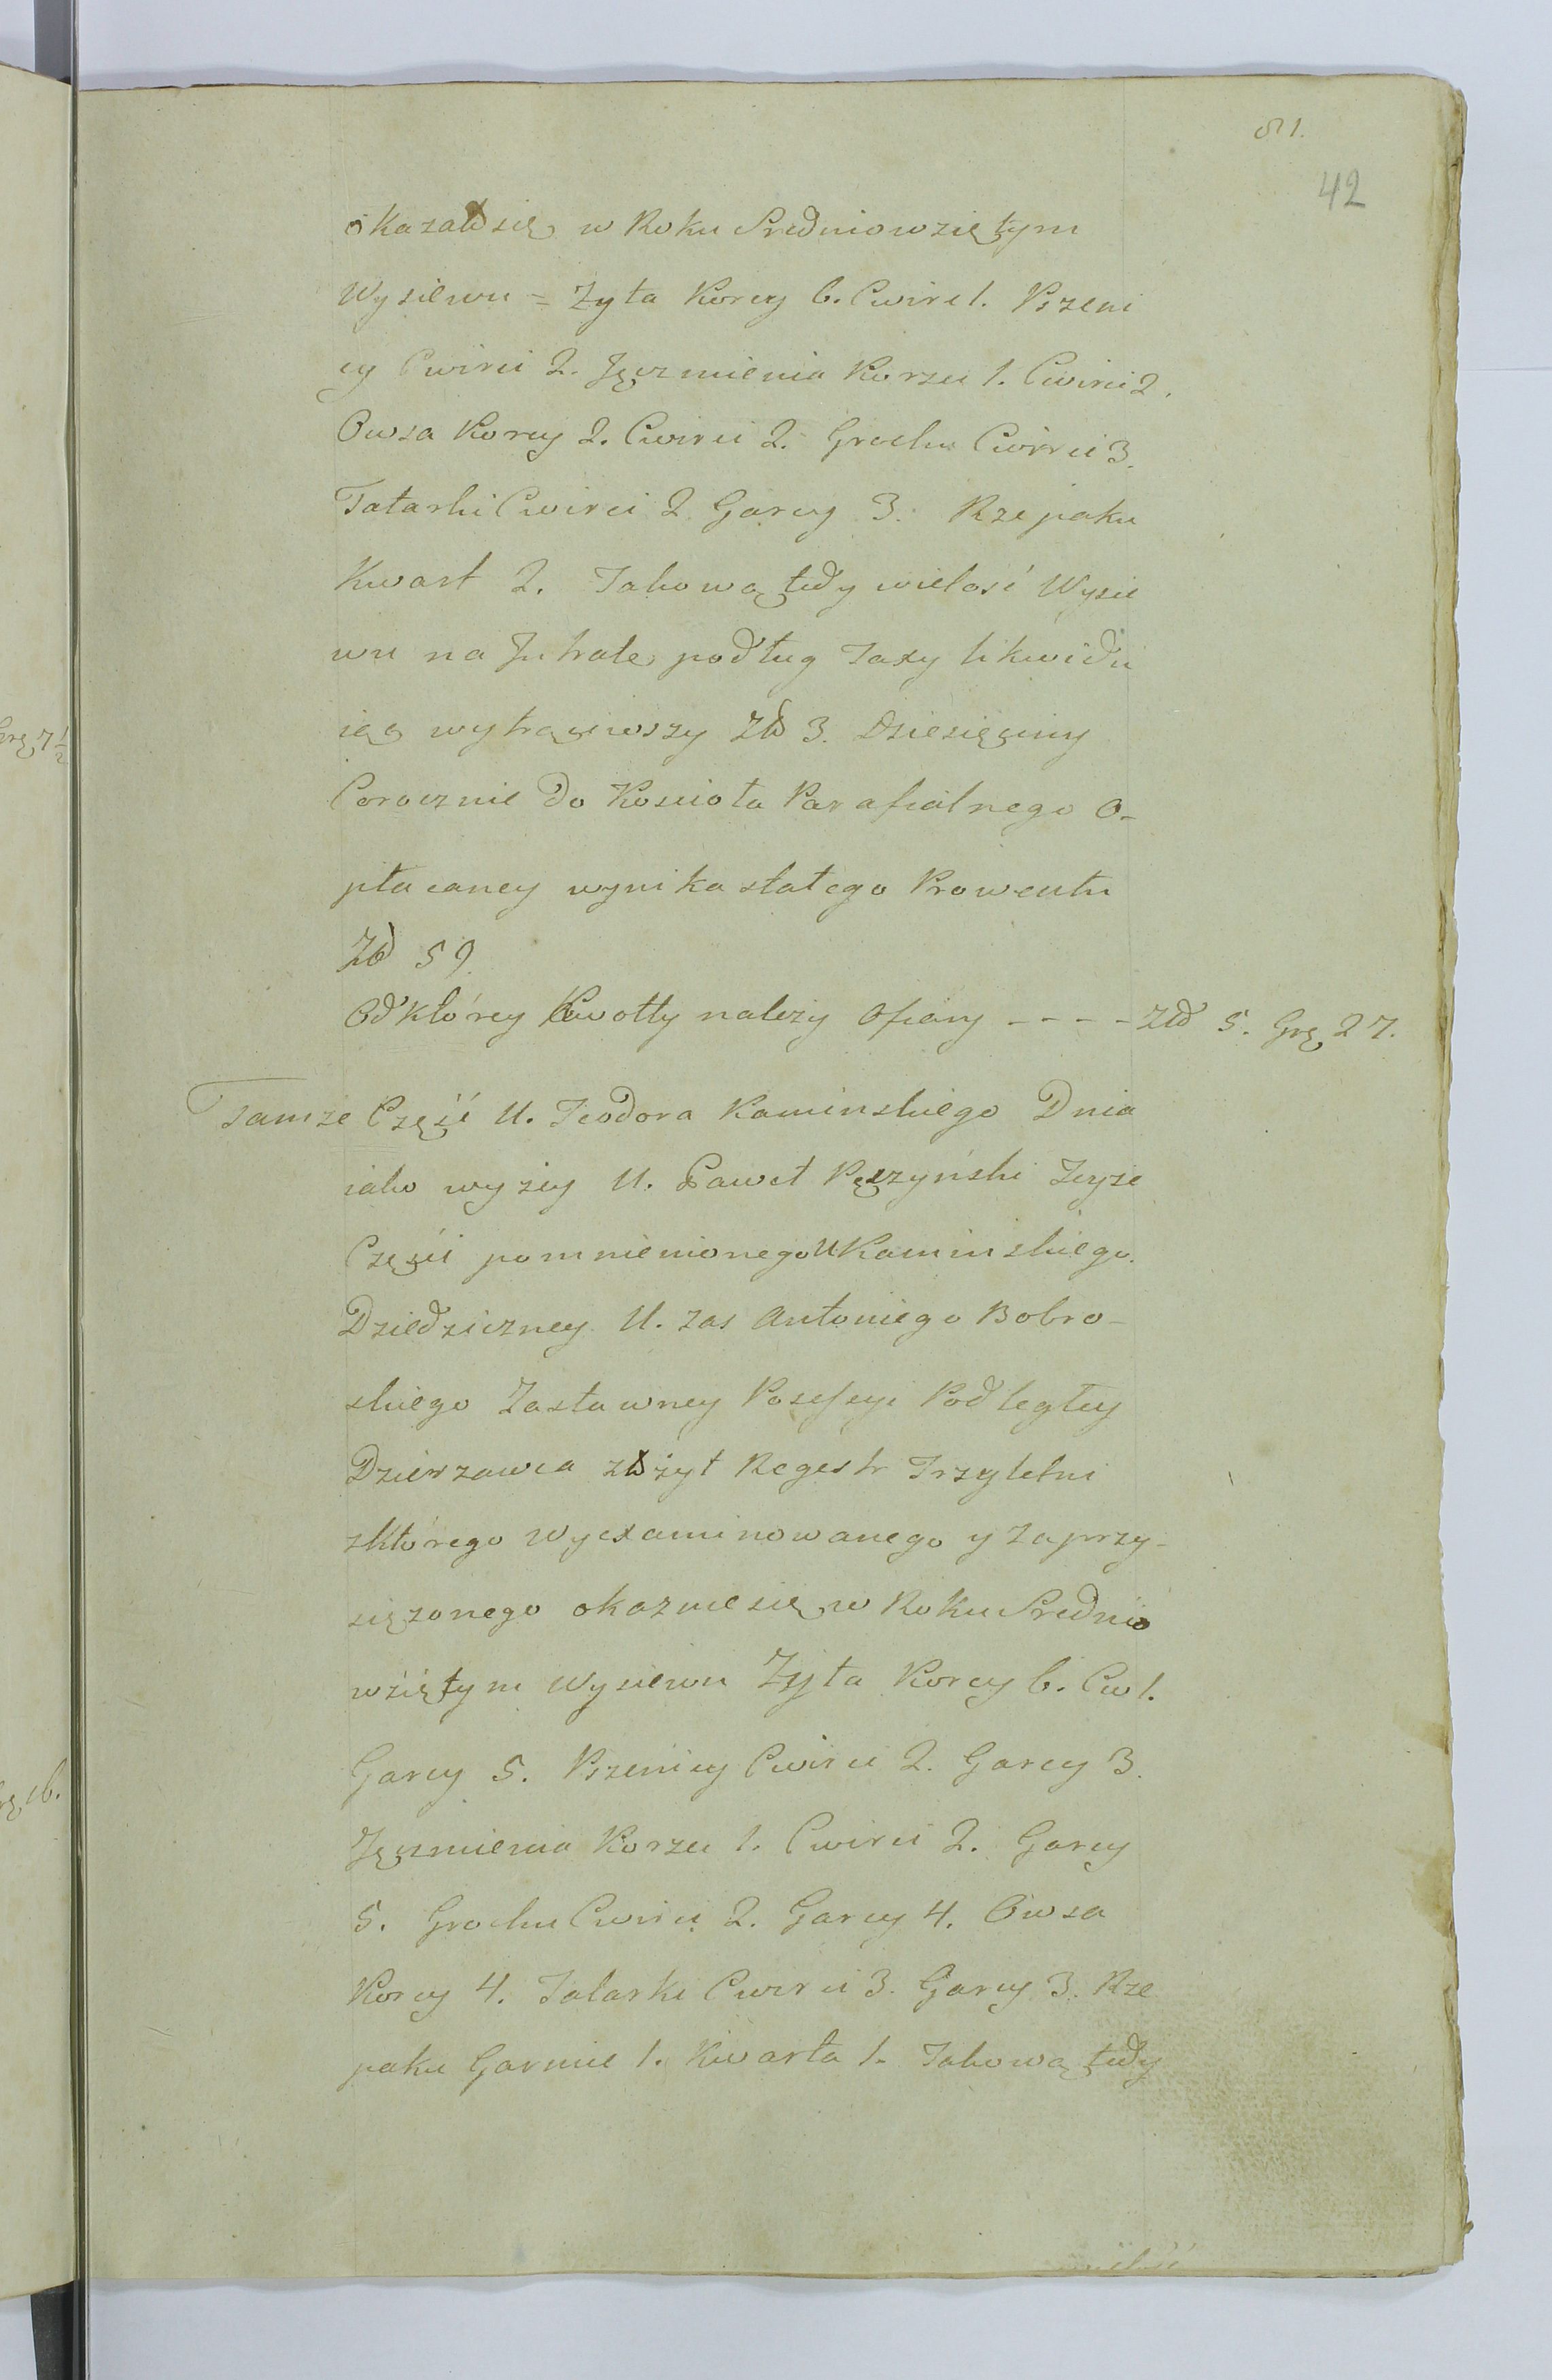 81.
42
okazał się w Roku Srednio wziętym
Wysiewu = Zyta Korcy 6. Cwierc 1. Pszeni
cy Cwirci 2. Jęczmienia Korzec 1. Cwirci 2.
Owsa Korcy 2. Cwirci 2. Grochu Cwirci 3.
Tatarki Cwirci 2 Garcy 3. Rzepaku
Kwart 2. Takową tedy wielość Wysie
wu na Intratę podług Taxy likwidu
iąc wytrąciwszy Złł 3. Dziesięciny
Corocznie do Koscioła Parafialnego O-
płacaney wynika stałego Prowentu
Złł 59.
Od którey Kwotty nalezy Ofiary - - - - Złł 5. Grę 27.
Tamze Częśc U. Teodora Kaminskiego Dnia
iako wyzey U. Paweł Pęczyński Teyże
Części pomnienionego U Kaminskiego.
Dziedziczney. U. zas Antoniego Bobro-
skiego Zastawney Possessyi Podległey
Dzierzawca złożył Regestr Trzyletni
z którego Wyexaminowanego y zaprzy-
siężonego okazuie się w Roku Srednio
wziętym Wysiewu Zyta Korcy 6. Cw 1.
Garcy 5. Pszenicy Cwirci 2. Garcy 3.
Jęczmienia Korzec 1. Cwirci 2. Garcy
5. Grochu Cwirci 2. Garcy 4. Owsa
Korcy 4. Tatarki Cwirci 3. Garcy 3. Rze
paku Garniec 1. Kwarta 1. Takową tedy
wielość
Grę 7 1/2
Grę 16.